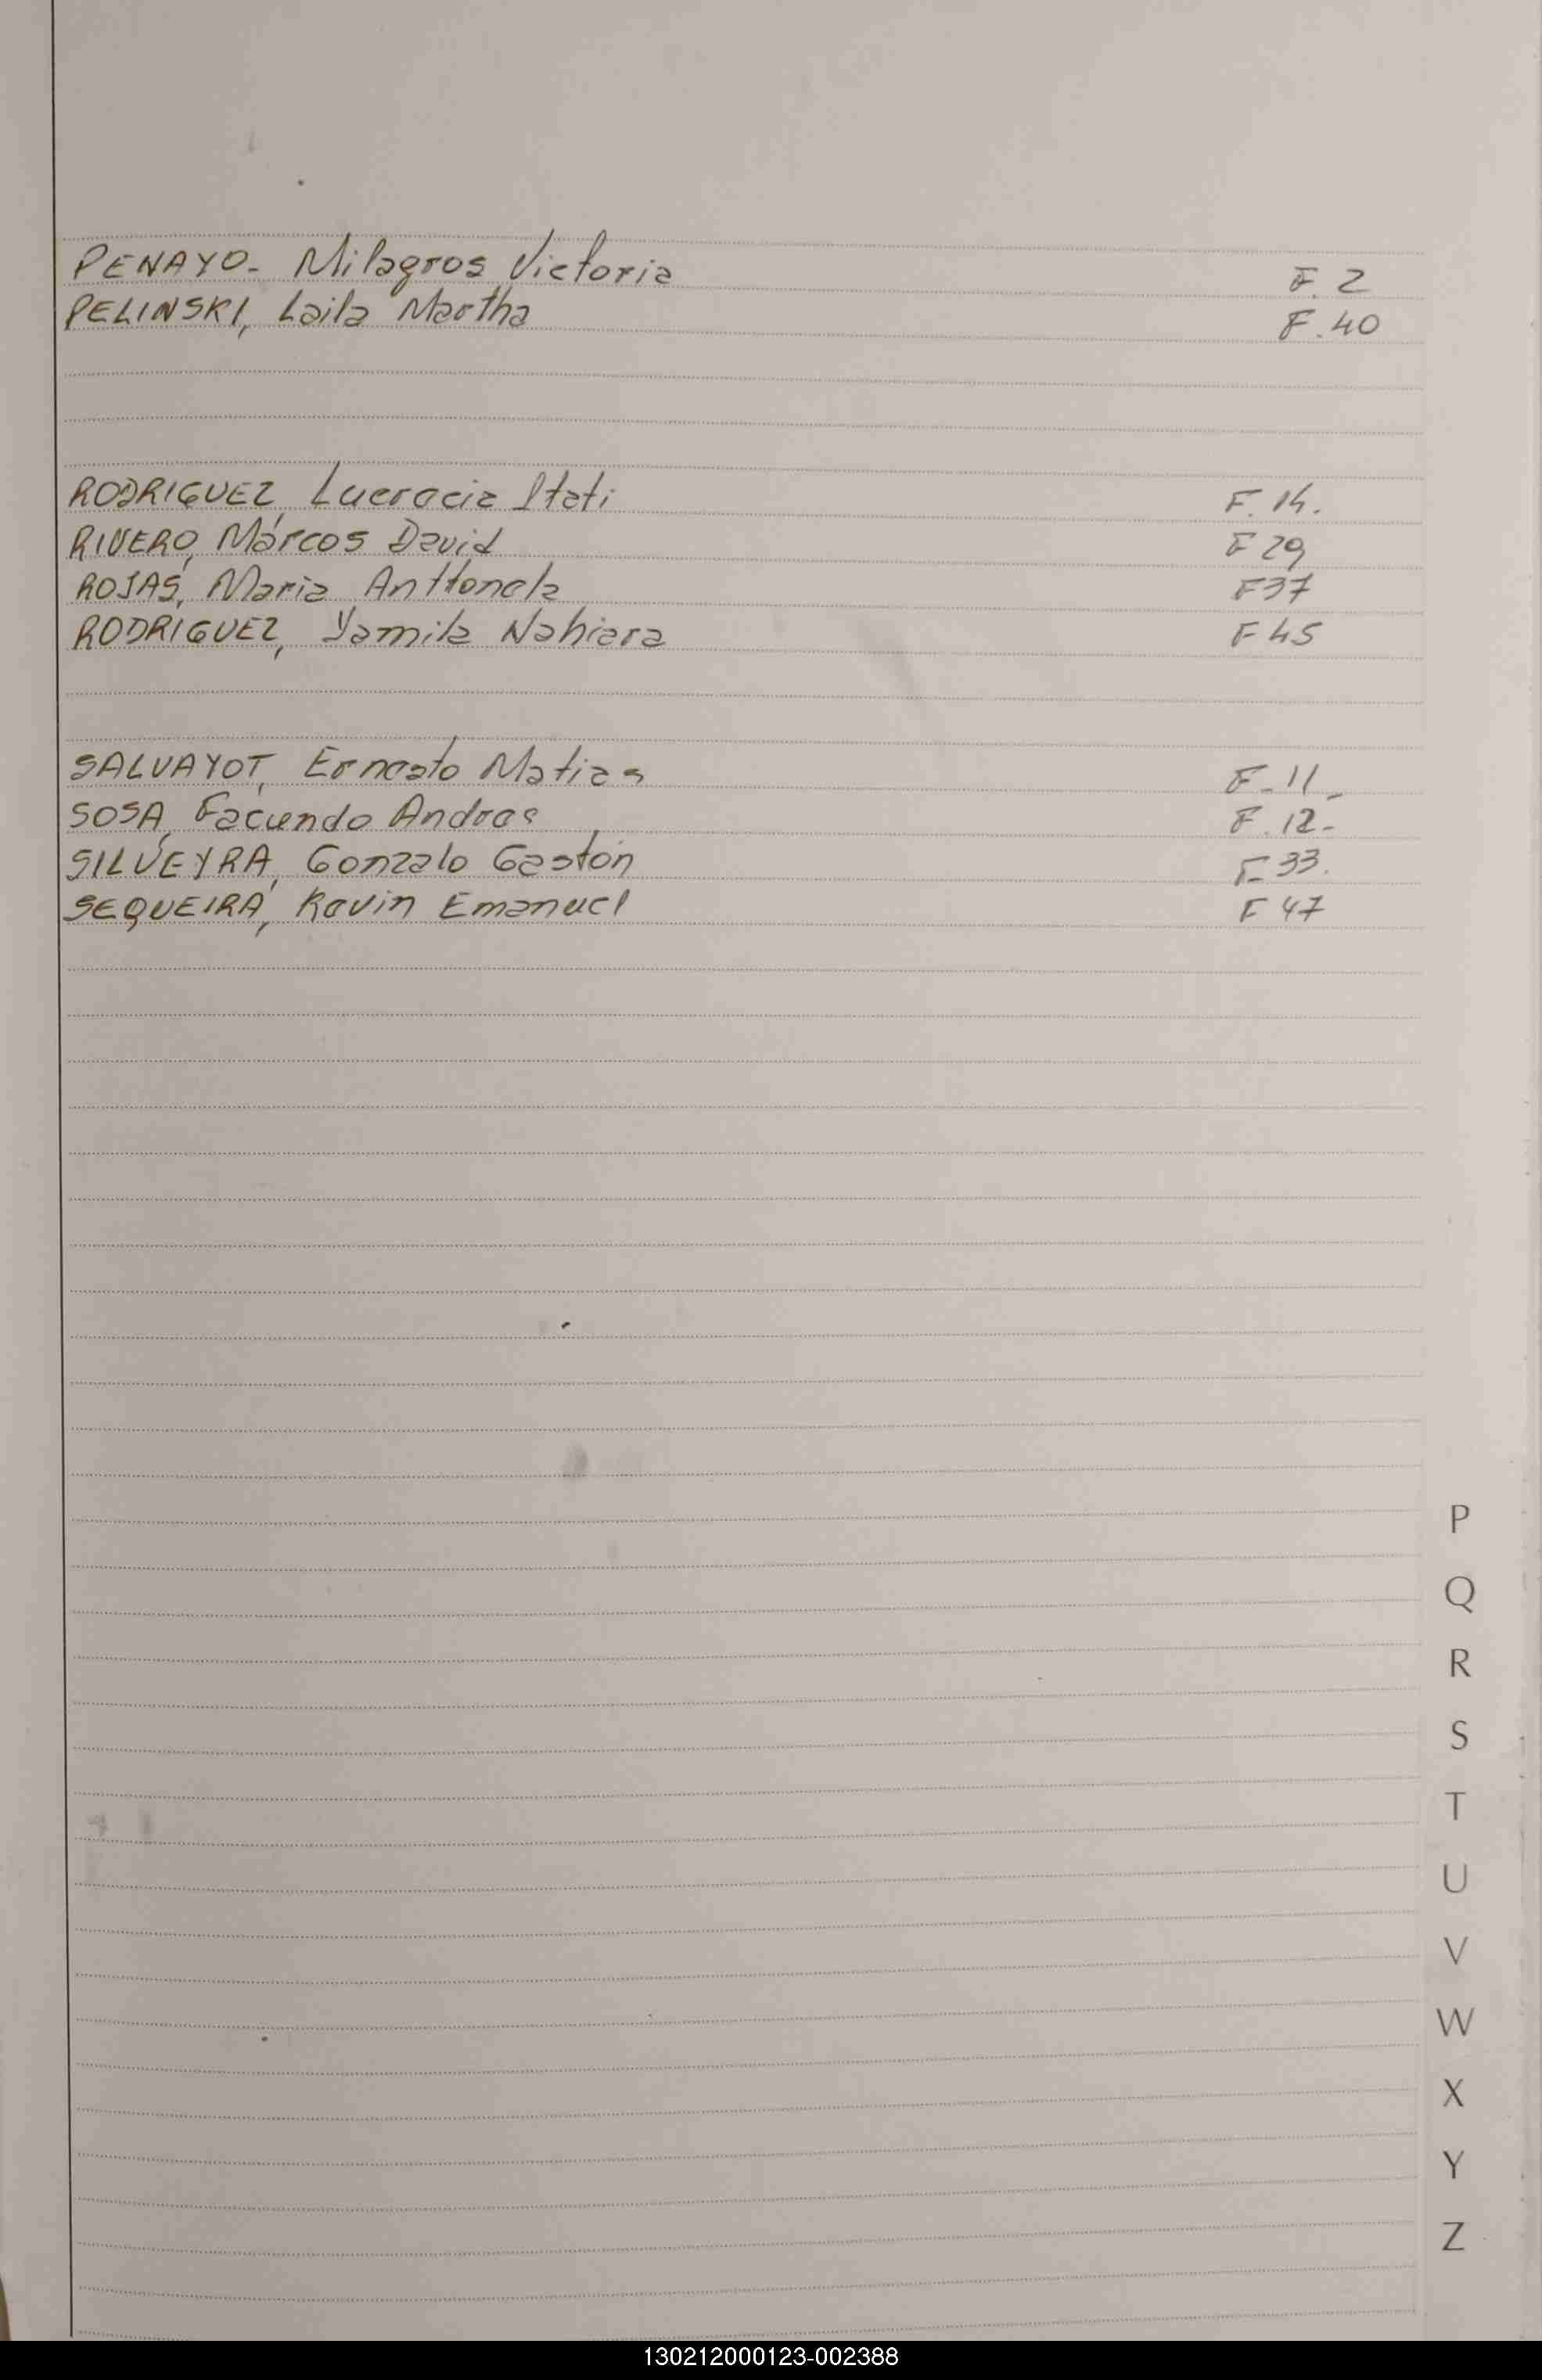 PENAYO- Milagros Victoria F. 2
PELINSKI, Laila Martha F. 40
RODRIGUEZ, Lucrecia Itati F. 14.
RIVERO, Marcos David F 29
ROJAS, Maria Anttonela F 37
RODRIGUEZ, Yamila Nahiara F 45
SALVAYOT, Ernesto Matias F- 11-
SOSA, Facundo Andres F. 12-
SILVEYRA, Gonzalo Gastón F- 33.
SEQUEIRA, Kevin Emanuel F 47
P
Q
R
S
T
U
V
W
X
Y
Z
130212000123-002388